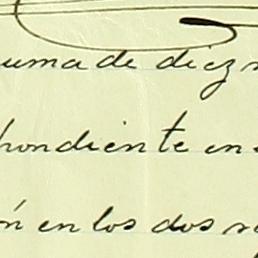 uma de diez
pondiente en
ón en los dos